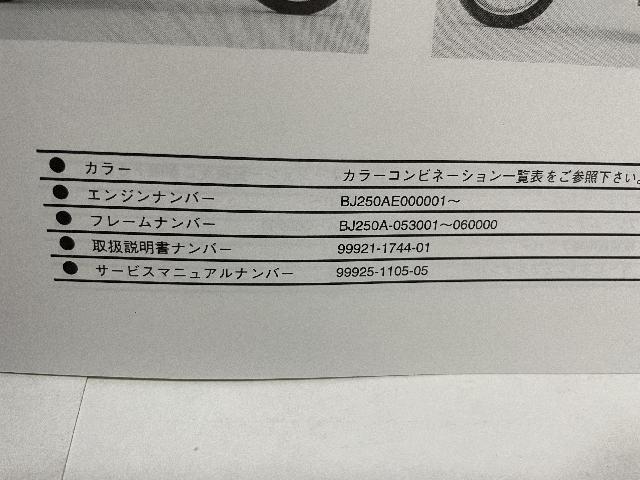 ● カラー カラーコンビネーション一覧表をご参照下さい
● エンジンナンバー BJ250AE000001～
● フレームナンバー BJ250A-053001～060000
● 取扱説明書ナンバー 99921-1744-01
● サービスマニュアルナンバー 99925-1105-05